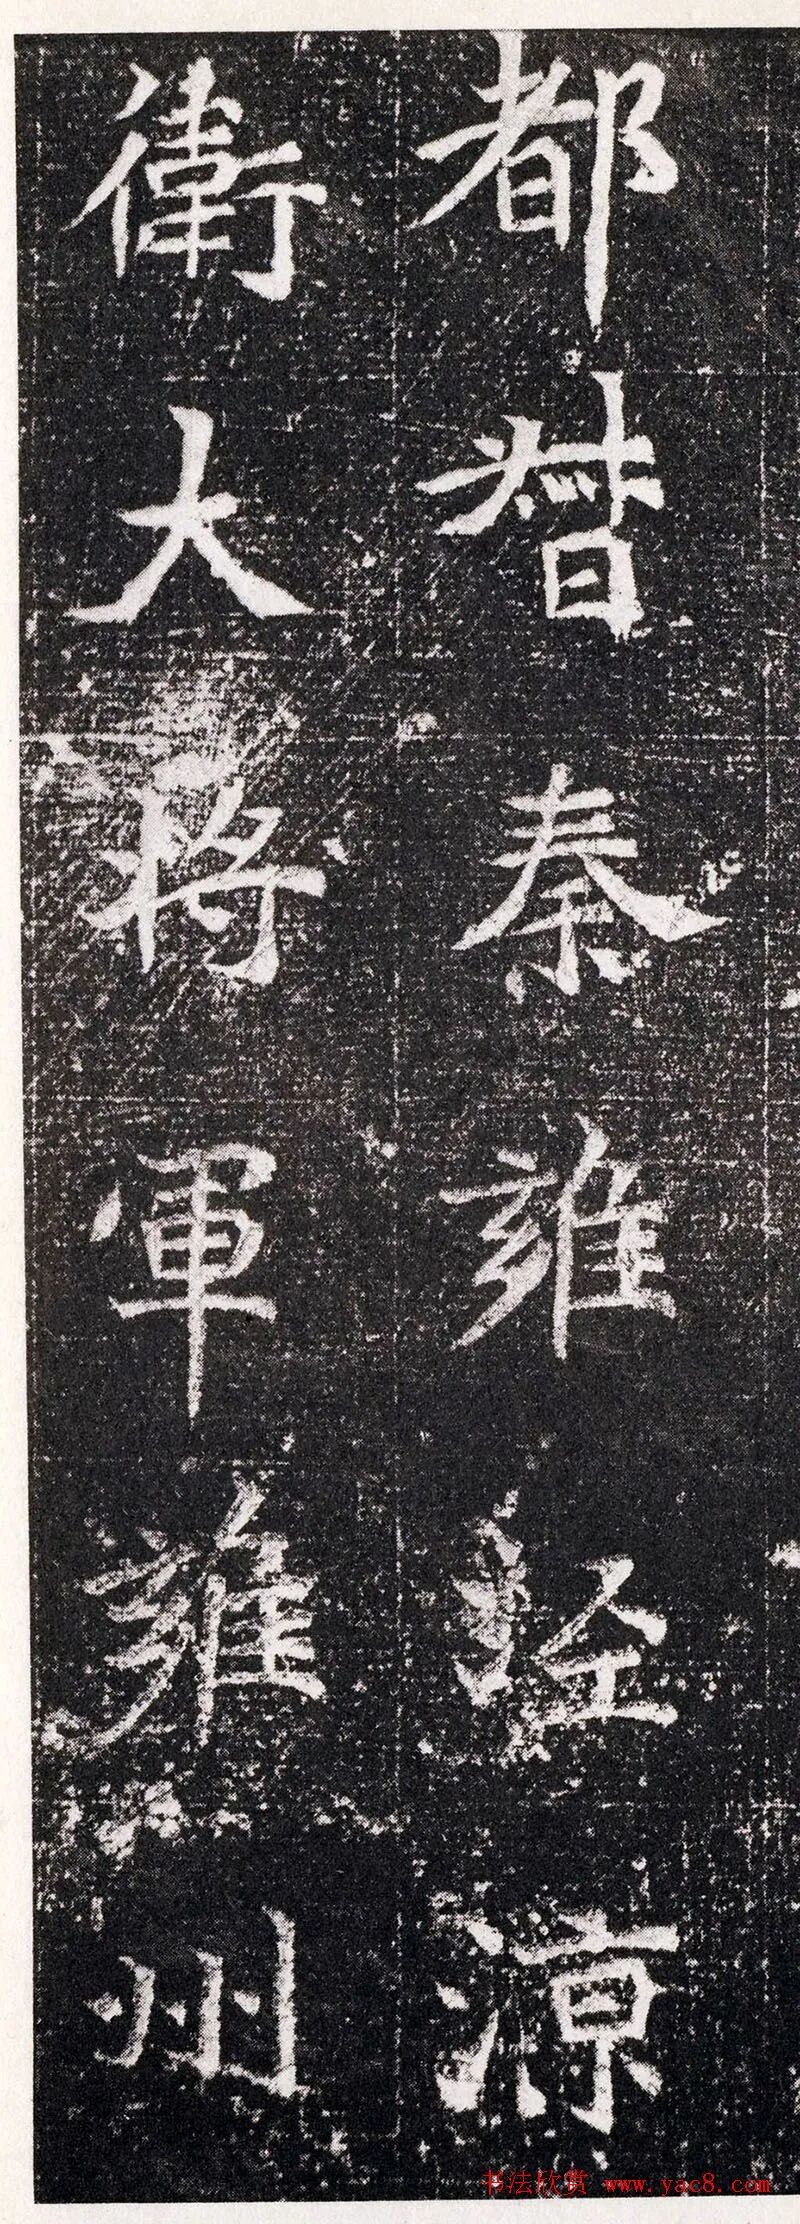 都督秦雍涇涼
衛大将軍雍州
书法欣赏 www.yac8.com